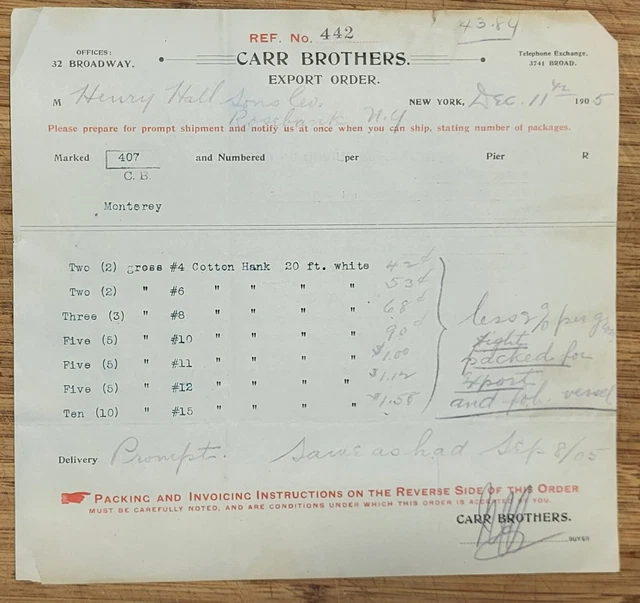 43.84
REF. No. 442
OFFICES:
32 BROADWAY.
CARR BROTHERS.
EXPORT ORDER.
Telephone Exchange.
3741 BROAD.
M Henry Hall Sons Co. NEW YORK, Dec. 11th 1905
Rosebank N.Y
Please prepare for prompt shipment and notify us at once when you can ship, stating number of packages.
Marked 407 and Numbered per Pier R
C. B.
Monterey
Two (2) gross #4 Cotton Hank 20 ft. white 42¢
Two (2) " #6 " " " " 53¢
Three (3) " #8 " " " " 68¢
Five (5) " #10 " " " " 90¢
Five (5) " #11 " " " " $1.00
Five (5) " #12 " " " " $1.12
Ten (10) " #15 " " " " $1.58
less % per
packed for
export
and fob. vessel
Delivery Prompt. Same as had Sep 8/05
PACKING AND INVOICING INSTRUCTIONS ON THE REVERSE SIDE OF THIS ORDER
MUST BE CAREFULLY NOTED, AND ARE CONDITIONS UNDER WHICH THIS ORDER IS ACCEPTED BY YOU.
CARR BROTHERS.
BUYER